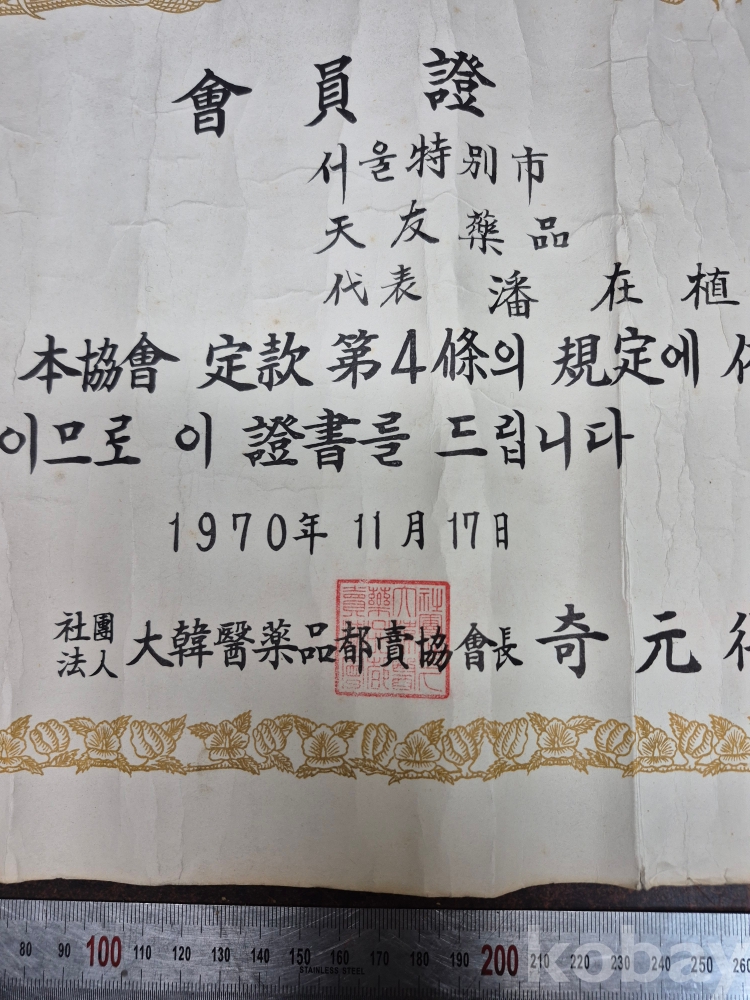 會員證
서울特別市
天友藥品
代表 潘在植
本協會 定款 第4條의 規定에
이므로 이 證書를 드립니다
1970年 11月 17日
社團法人 大韓醫藥品都賣協會長 奇元
80 90 100 110 120 130 140 150 160 170 180 190 200 210 220 230 240 250 260
STAINLESS STEEL
kobay